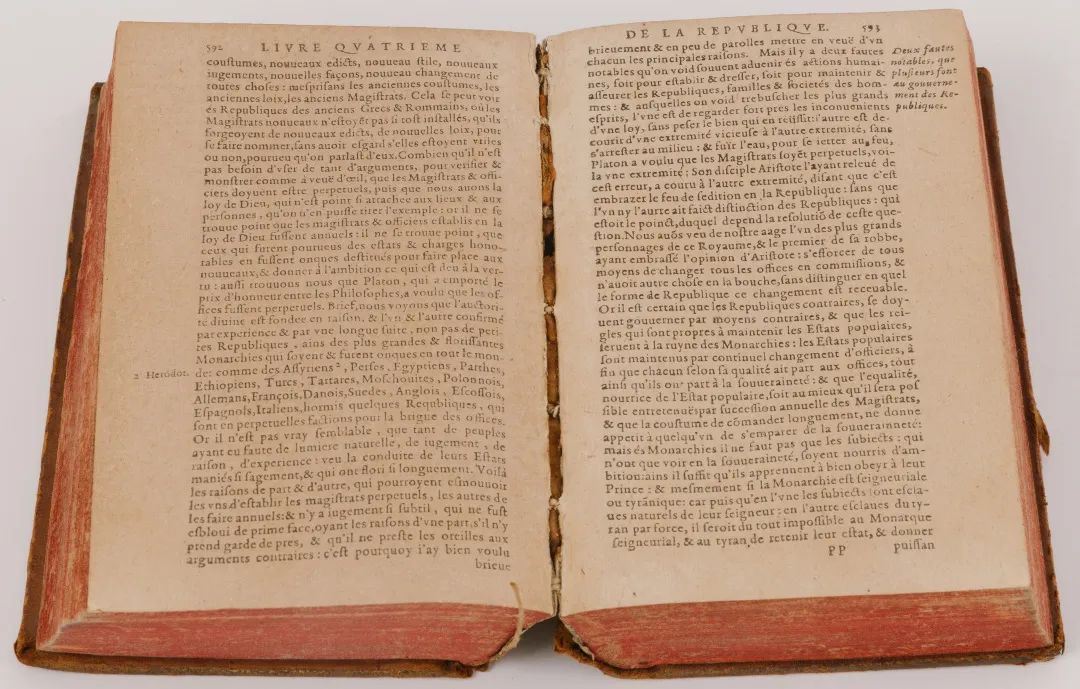 592 LIVRE QVATRIEME
coustumes, nouueaux edicts, nouueau stile, nouueaux
iugements, nouuelles façons, nouueau changement de
toutes choses : mesprisans les anciennes coustumes, les
anciennes loix, les anciens Magistrats. Cela se peut voir
és Republiques des anciens Grecs & Rommains, où les
Magistrats nouueaux n'estoyẽt pas si tost installés, qu'ils
forgeoyent de nouueaux edicts, de nouuelles loix, pour
se faire nommer, sans auoir esgard s'elles estoyent vtiles
ou non, pourueu qu'on parlast d'eux. Combien qu'il n'est
pas besoin d'vser de tant d'arguments, pour verifier &
monstrer comme à veuë d'œil, que les Magistrats & offi-
ciers doyuent estre perpetuels, puis que nous auons la
loy de Dieu, qui n'est point si attachee aux lieux & aux
personnes, qu'on n'en puisse tirer l'exemple : or il ne se
trouue point que les magistrats & officiers establis en la
loy de Dieu fussent annuels : il ne se trouue point, que
ceux qui furent pourueus des estats & charges hono-
rables en fussent onques destitués pour faire place aux
nouueaux, & donner à l'ambition ce qui est deu à la ver-
tu : aussi trouuons nous que Platon, qui a emporté le
prix d'honneur entre les Philosophes, a voulu que les of-
fices fussent perpetuels. Brief, nous voyons que l'auctori-
té diuine est fondee en raison. & l'vn & l'autre confirmé
par experience & par vne longue suite, non pas de peti-
tes Republiques, ains des plus grandes & florissantes
Monarchies qui soyent & furent onques en tout le mon-
2 Herodot. de : comme des Assyriens 2, Perses, Egyptiens, Parthes,
Ethiopiens, Turcs, Tartares, Moschouites, Polonnois,
Allemans, François, Danois, Suedes, Anglois, Escossois,
Espagnols, Italiens, hormis quelques Requbliques, qui
sont en perpetuelles factions pour la brigue des offices.
Or il n'est pas vray semblable, que tant de peuples
ayant eu faute de lumiere naturelle, de iugement, de
raison, d'experience : veu la conduite de leurs Estats
maniés si sagement, & qui ont flori si longuement. Voilà
les raisons de part & d'autre, qui pourroyent esmouuoir
les vns d'establir les magistrats perpetuels, les autres de
les faire annuels : & n'y a iugement si subtil, qui ne fust
esbloui de prime face, oyant les raisons d'vne part, s'il n'y
prend garde de pres, & qu'il ne preste les oreilles aux
arguments contraires : c'est pourquoy i'ay bien voulu
brieue
DE LA REPVBLIQVE. 593
brieuement & en peu de parolles mettre en veuë d'vn
chacun les principales raisons. Mais il y a deux fautes
notables qu'on void souuent aduenir és actions humai-
nes, soit pour establir & dresser, soit pour maintenir &
asseurer les Republiques, familles & societés des hom-
mes : & ausquelles on void trebuscher les plus grands
esprits, l'vne est de regarder fort pres les inconuenients
d'vne loy, sans peser le bien qui en reüssit : l'autre est de
courir d'vne extremité vicieuse à l'autre extremité, sans
s'arrester au milieu : & fuïr l'eau, pour se ietter au feu,
Platon a voulu que les Magistrats soyẽt perpetuels, voi-
la vne extremité : Son disciple Aristote l'ayant releué de
cest erreur, a couru à l'autre extremité, disant que c'est
embrazer le feu de sedition en la Republique : sans que
l'vn ny l'autre ait faict distinction des Republiques : qui
estoit le poinct, duquel depend la resolutiõ de ceste que-
stion. Nous auõs veu de nostre aage l'vn des plus grands
personnages de ce Royaume, & le premier de sa robbe,
ayant embrassé l'opinion d'Aristote : s'efforcer de tous
moyens de changer tous les offices en commissions, &
n'auoit autre chose en la bouche, sans distinguer en quel
le forme de Republique ce changement est receuable.
Or il est certain que les Republiques contraires, se doy-
uent gouuerner par moyens contraires, & que les rei-
gles qui sont propres à maintenir les Estats populaires,
seruent à la ruyne des Monarchies : les Estats populaires
sont maintenus par continuel changement d'officiers, à
fin que chacun selon sa qualité ait part aux offices, tout
ainsi qu'ils ont part à la souueraineté : & que l'equalité,
nourrice de l'Estat populaire, soit au mieux qu'il sera pos
sible entretenuë par succession annuelle des Magistrats,
& que la coustume de cõmander longuement, ne donne
appetit à quelqu'vn de s'emparer de la souuerainneté :
mais és Monarchies il ne faut pas que les subiects : qui
n'ont que voir en la souueraineté, soyent nourris d'am-
bition : ains il suffit qu'ils apprennent à bien obeyr à leur
Prince : & mesmement si la Monarchie est seigneuriale
ou tyrãnique : car puis qu'en l'vne les subiects sont escla-
ues naturels de leur seigneur : en l'autre esclaues du ty-
ran par force, il seroit du tout impossible au Monarque
seigneurial, & au tyran de retenir leur estat, & donner
PP puissan
Deux fautes
notables, que
plusieurs font
au gouuerne-
ment des Re-
publiques.